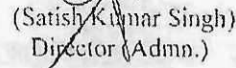 (Satish Kumar Singh)
Director (Admn.)